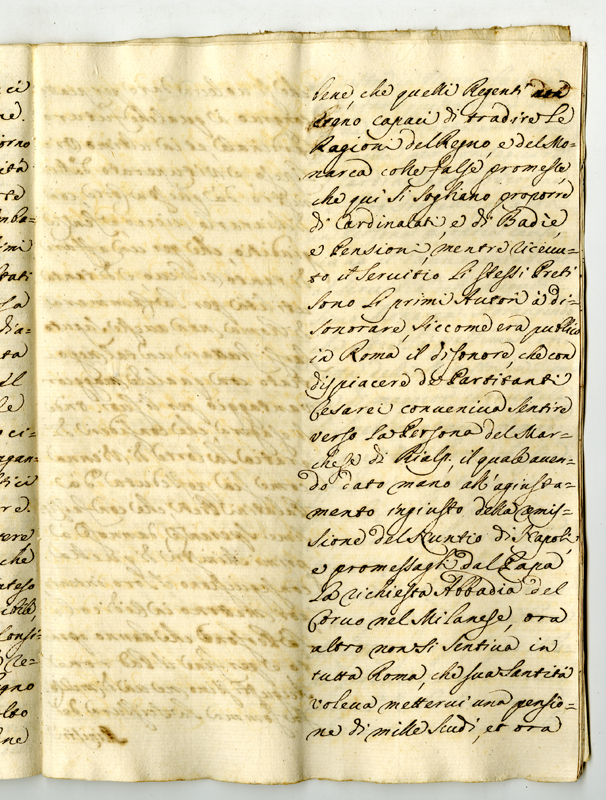 ci
ne.
orno
ità
te
mba=
imi
tati
La
dia=
ta
il
le
ci=
ngan=
tici
re.
tere,
che
nteso
cibile,
Consi=
re=
gno
lto
ne
bene, che quelli Regenti non
erano capaci di tradire Le
Ragioni del Regno e del Mo=
narca colle false promesse
che qui si sogliano proporre
di Cardinalati, e di Badie,
e Pensioni, mentre riceuu=
to il Servitio Li stessi Preti
sono Li primi Autori à di=
sonorare, siccome era publico
in Roma il disonore, che con
dispiacere de Partitanti
Cesarei conveniva sentire
verso La Persona del Mar=
chese di Rialp, il quale aven=
do dato mano all'agiusta=
mento ingiusto della remis=
sione del Nuntio di Napoli,
e promessagli dal Papa
La richiesta Abbadia del
Corvo nel Milanese, ora
altro non si sentiva in
tutta Roma, che sua Santità
voleva metterui una pensio=
ne di mille scudi, et ora